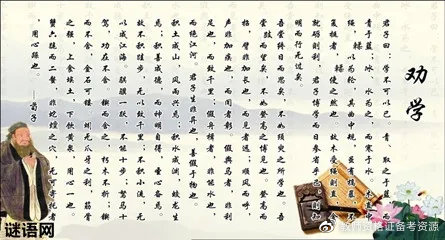 劝学
君子曰：学不可以已。青，取之于蓝，而
青于蓝；冰，水为之，而寒于水。木直中
绳，輮以为轮，其曲中规。虽有槁暴，不
复挺者，輮使之然也。故木受绳则直，金
就砺则利，君子博学而日参省乎己，则知
明而行无过矣。
吾尝终日而思矣，不如须臾之所学也。吾
尝跂而望矣，不如登高之博见也。登高而
招，臂非加长也，而见者远；顺风而呼，
声非加疾也，而闻者彰。假舆马者，非利
足也，而致千里；假舟楫者，非能水也，
而绝江河。君子生非异也，善假于物也。
积土成山，风雨兴焉；积水成渊，蛟龙生
焉；积善成德，而神明自得，圣心备焉。
故不积跬步，无以致千里；不积小流，无
以成江海。骐骥一跃，不能十步；驽马十
驾，功在不舍。锲而舍之，朽木不折；锲
而不舍，金石可镂。蚓无爪牙之利，筋骨
之强，上食埃土，下饮黄泉，用心一也。
蟹六跪而二螯，非蛇鳝之穴，无可寄托者
用心躁也。——荀子
谜语网
@教师资格证备考资源